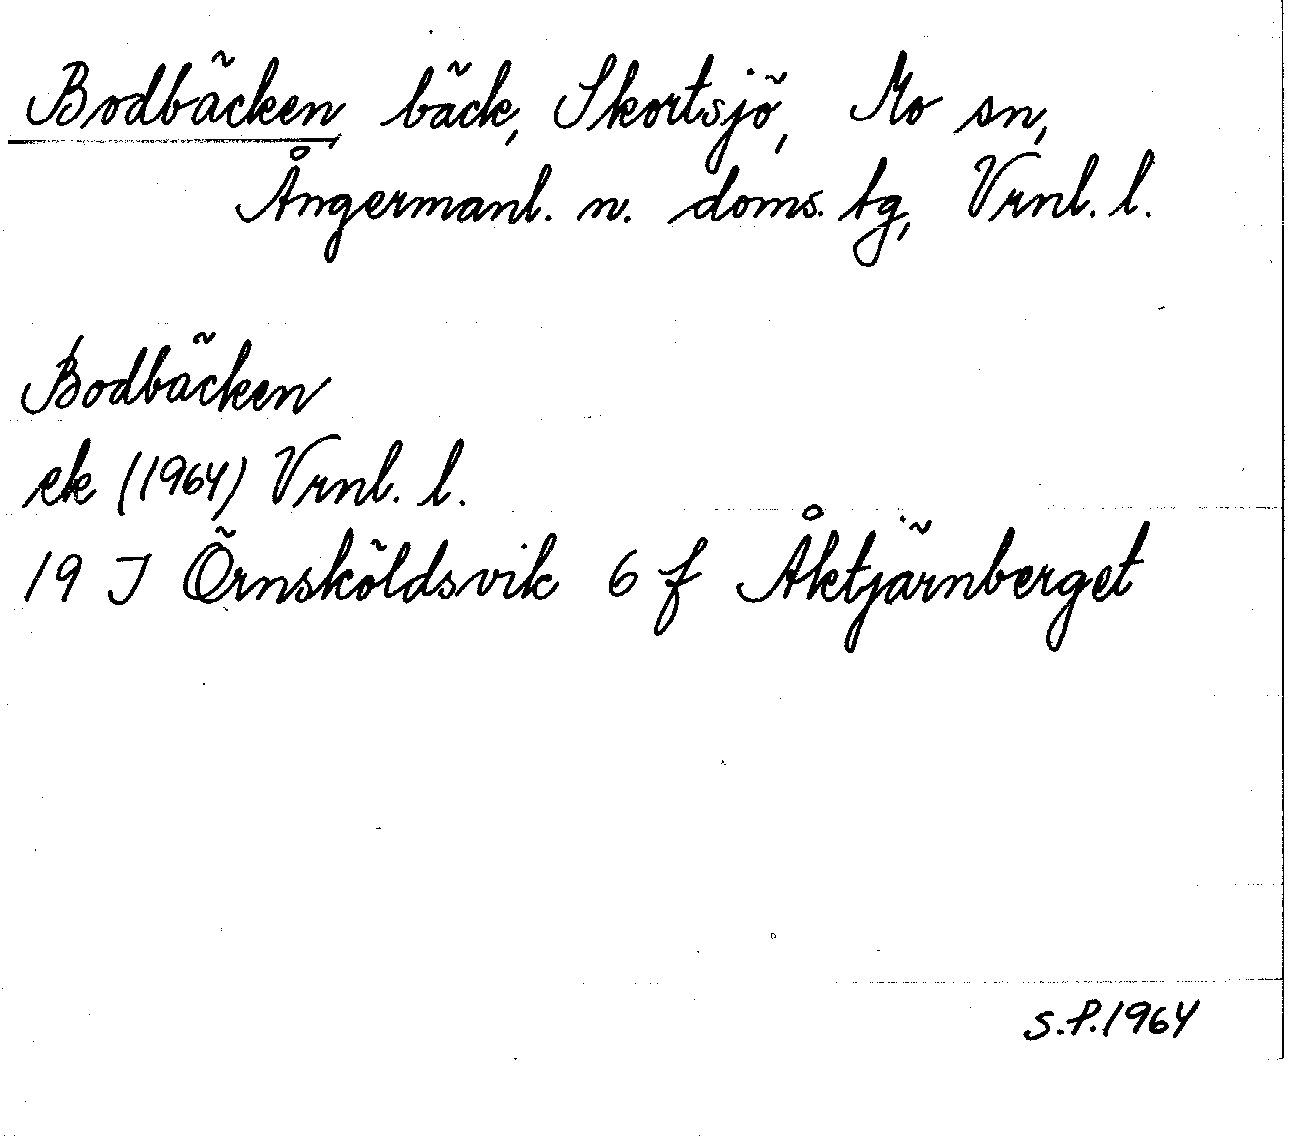 Bodbäcken, bäck, Skortsjö, Mo sn,
Ångermanl. n. doms. tg, Vrnl. l.
Bodbäcken
ek (1964) Vrnl. l.
19 J Örnsköldsvik 6 f Åktjärnberget
S.P.1964